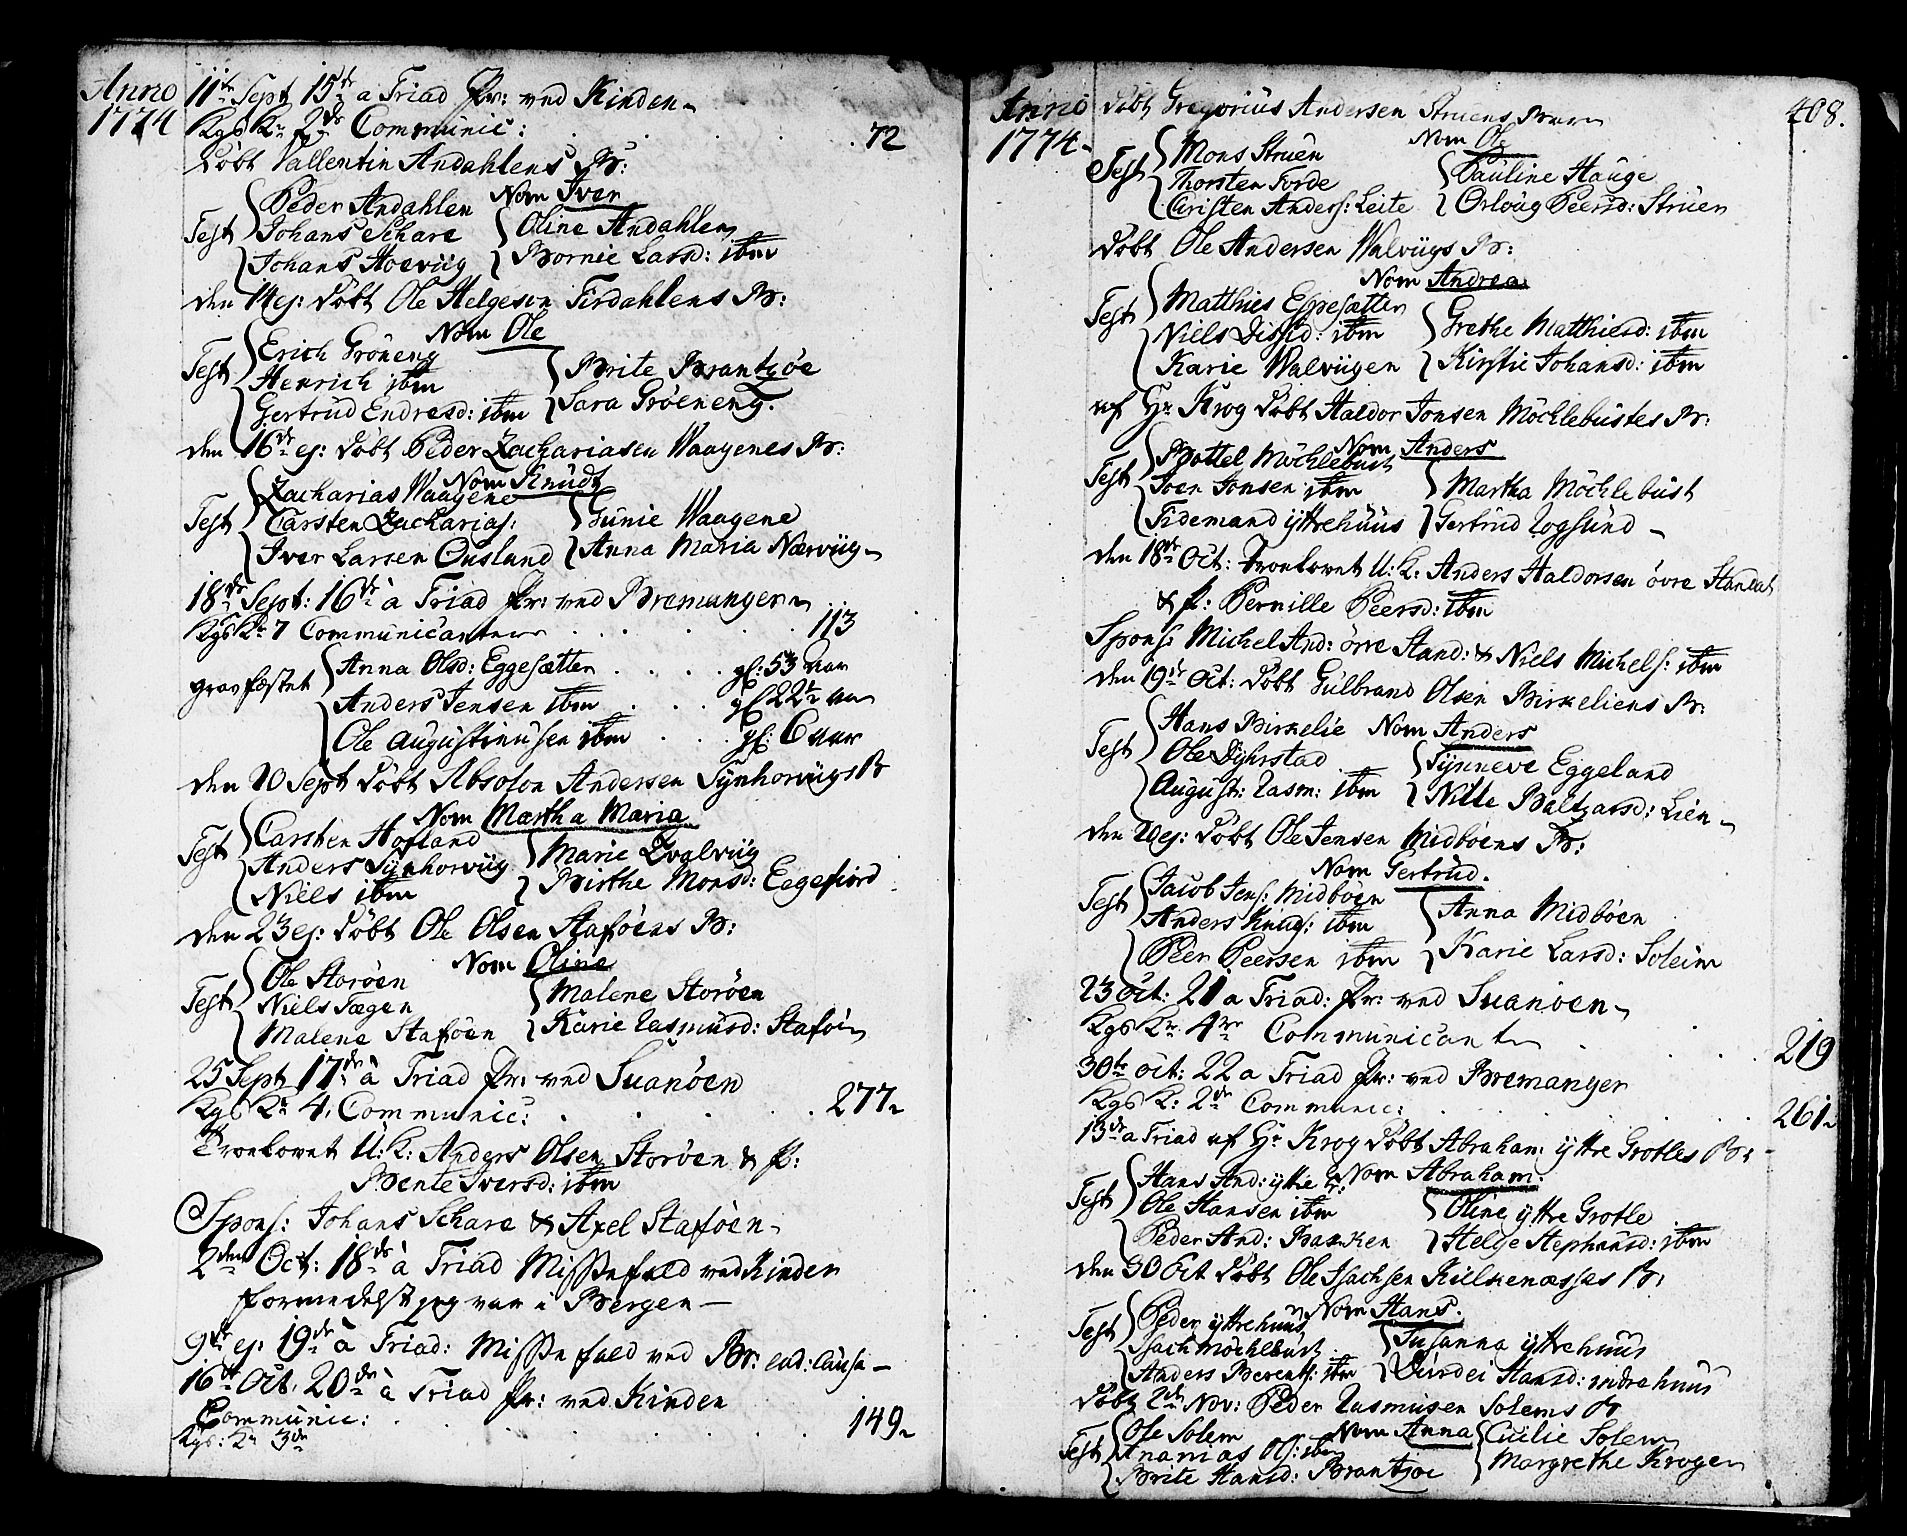 Anno 1774
11te Sept 15de a Triad Pr: ved Kinden
Kgs Kr 2de Communic: . . . 72
Døbt Vallentin Andahlens Br:
Nom Iver
Test Peder Andahlen
Johans Schare
Johans Hoevüg
Oline Andahlen
Bornie Larsd: ibm
den 14 ej: Døbt Ole Helgesen Tirdahlens Br:
Nom Ole
Test Erich Gröneng
Henrich ibm
Gertrud Endresd: ibm
Brite Brantzöe
Sara Gröeneng.
den 16de ej: Døbt Peder Zachariasen Waagenes Br:
Nom Knudt
Test Zacharias Waagene
Carsten Zacharias:
Iver Larsen Ousland
Gunie Waagene
Anna Maria Nærvüg
18de Sept: 16de à Triad Pr: ved Bremanger
Kgs Kr 7 Communicanter . . . 113
gravfæstet Anna Olsd: Eggesætter . . . gl: 53 aar
Anders Jensen ibm . . . gl 22½ aar
Ole Augustinusen ibm . . . gl: 6 aar
den 20 Sept Døbt Absolon Andersen Synhorvügs Br
Nom Martha Maria
Test Carsten Hofland
Anders Synhorvüg
Niels ibm
Marie Qvalvüg
Birthe Monsd: Eegefiord
den 23 ej: Døbt Ole Olsen Staføens Br:
Nom Oline
Test Ole Storöen
Niels Fægen
Malene Staføen
Malene Storöen
Karie Rasmusd: Staføen
25 Sept 17de à Triad Pr: ved Suanöen
Kgs Kr 4, Communic: . . . 277
Troelovet U: K: Anders Olsen Storöen & P:
Bente Iversd: ibm
Spons: Johans Schare & Axel Staføen
2den Oct: 18de à Triad Missefald ved Kinden
formedelst jeg var i Bergen
9de ej: 19de à Triad: Missefald ved Br: ead: causa
16de Oct. 20de à Triad Pr: ved Kinden
Communic: . . . 149
Kgs: Kr 3de
Anno 1774
408.
Døbt Gregorius Andersen Struens Barn
Nom Ole
Test Mons Struen
Thorsten Forde
Christen Anders: Leite
Pauline Hauge
Orloug Peersd: Struen
Døbt Ole Andersen Walvügs Br:
Nom Andrea
Test Matthies Espesætter
Niels ibm
Karie Walvügen
Grethe Matthiesd: ibm
Kirstie Johansd: ibm
af Hr Krog Døbt Haldor Jonsen Möchlebustes Br:
Nom Anders
Test Bottel Möchlebust
Joen Jonsen ibm
Tidemand yttrehuus
Martha Möchlebust
Gertrud Rogsund
den 18de Oct: Troelovet U: K: Anders Haldorsen övre Standal
& P: Pernille Peersd: ibm
Spons: Michel And: övre Stand: & Niels Michels: ibm
den 19de Oct: Døbt Gulbrand Olsen Birkeliens Br:
Nom Anders
Test Hans Birkelie
Ole Dyhrstad
August: Rasm: ibm
Synneve Eggeland
Nille Baltzarsd: Lien
den 20 ej: Døbt Ole Jensen Midböens Br:
Nom Gertrud.
Test Jacob Jens: Midböen
Anders Knuds: ibm
Peer Peersen ibm
Anna Midböen
Karie Larsd: Soleim
23 Oct: 21 a Triad: Pr: ved Suanöen
Kgs Kr. 4re Communicanter . . . 219
30te Oct: 22 a Triad Pr: ved Bremanger
Kgs K: 2de Communic: . . . 261
13de a Triad af Hr Krog Døbt Abraham yttre Grotles Br:
Nom Abraham.
Test Hans And: yttre Gr:
Ole Hansen ibm
Peder And: Bakken
Oline yttre Grotle
Helge Stephensd: ibm
den 30 Oct Døbt Ole Isachsen Kulkenæssas Br:
Nom Hans.
Test Peder yttrehuus
Isach Möchlebust
Anders Berents: ibm
Susanna yttrehuus
Durdei Hansd: indrehuus
Døbt 2de Nov: Peder Rasmusen Solems Br
Nom Anna
Test Ole Solem
Ananias Ols: ibm
Brite Hansd: Brantzöe
Cicilie Solem
Margrethe Krogen